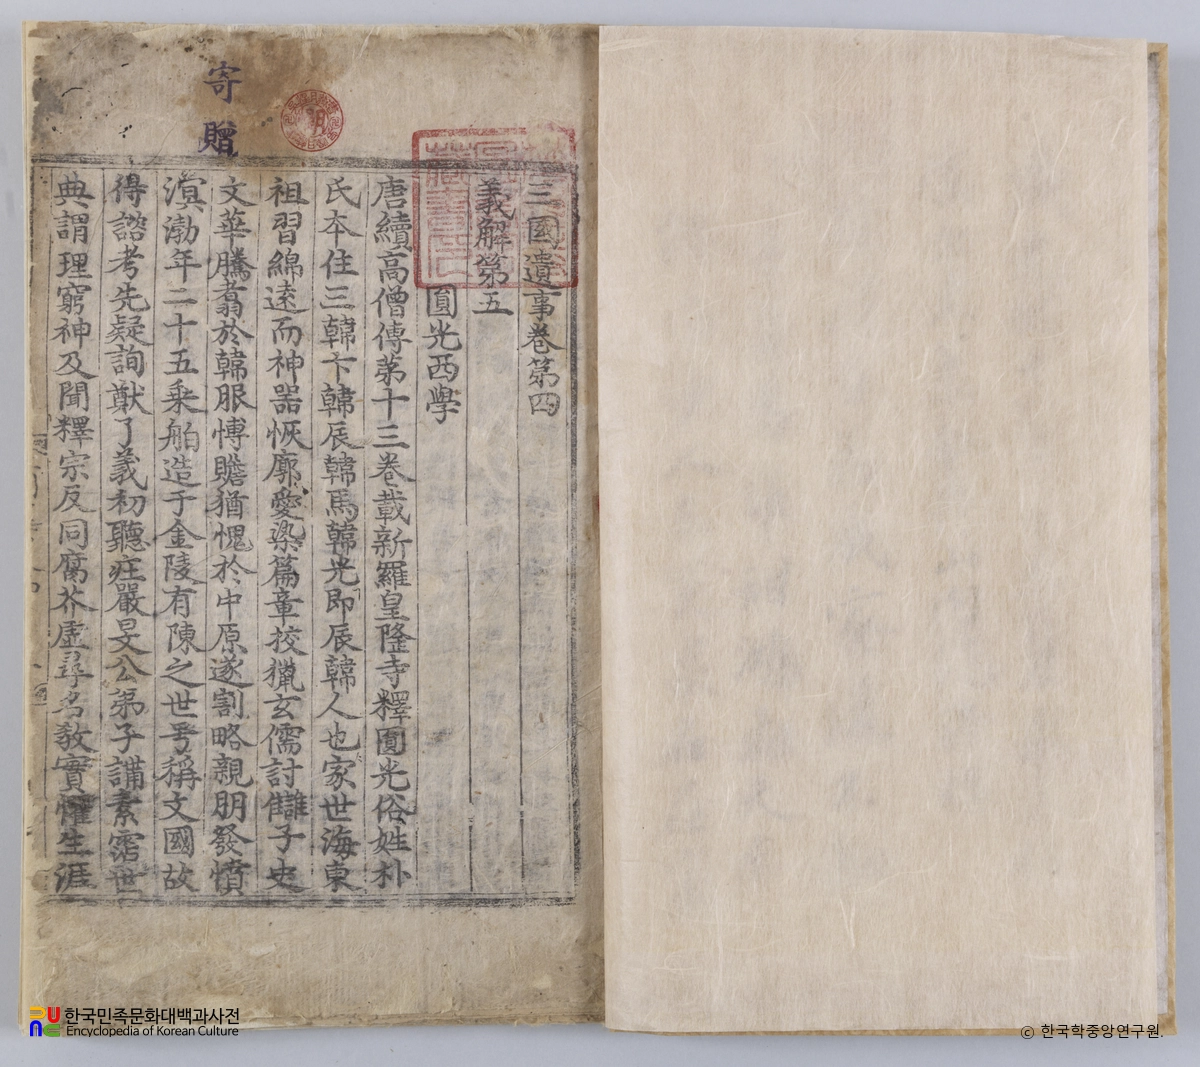 三國遺事卷第四
義解第五
圎光西學
唐續高僧傳第十三卷載新羅皇隆寺釋圎光俗姓朴
氏本住三韓卞韓辰韓馬韓光即辰韓人也家世海東
祖習綿遠而神器恢廓愛染篇章校獵玄儒討讎子史
文華騰翥於韓服愽贍猶愧於中原遂割略親朋發憤
溟渤年二十五乘舶造于金陵有陳之世号稱文國故
得諮考先疑詢猷了義初聽莊嚴旻公弟子講素霑世
典謂理窮神及聞釋宗反同腐芥虛尋名敎實懼生涯
寄贈
한국민족문화대백과사전
Encyclopedia of Korean Culture
© 한국학중앙연구원.